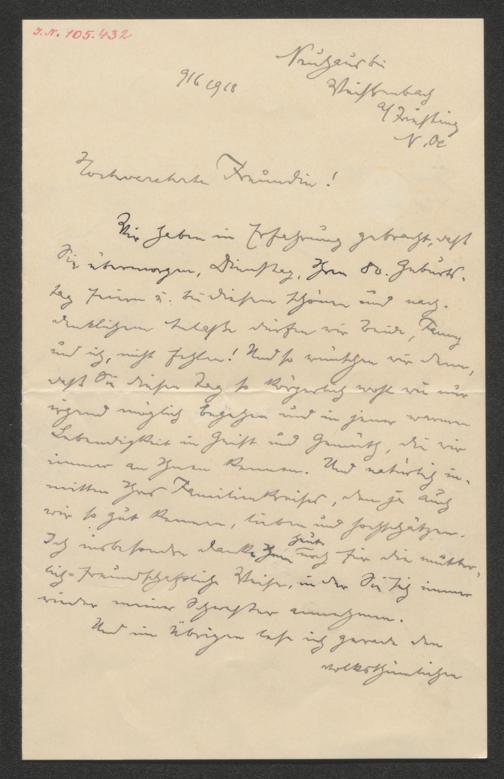 J.N. 105.432
Neuhaus bei
9/6 1918
Weissenbach
a/Triesting
N.Oe
Hochverehrte Freundin!
Wir haben in Erfahrung gebracht, daß
Sie übermorgen, Dienstag, Ihren 80. Geburts-
tag feiern u. bei diesem schönen und nach-
denklichem Feste dürfen wir beide, Fanny
und ich, nicht fehlen! Und so wünschen wir denn,
daß Sie diesen Tag so körperlich wohl wie nur
irgend möglich begehen und in jener warmen
Lebendigkeit in Geist und Gemüth, die wir
immer an Ihnen kennen. Und natürlich in-
mitten Ihres Familienkreises, den ja auch
wir so gut kennen, lieben und hochschätzen.
Ich insbesondere danke Ihnen heute noch für die mütter-
lich-freundschaftliche Weise, in der Sie sich immer
wieder meiner Schriften annehmen.
Und im Übrigen lese ich gerade den
volksthümlichen